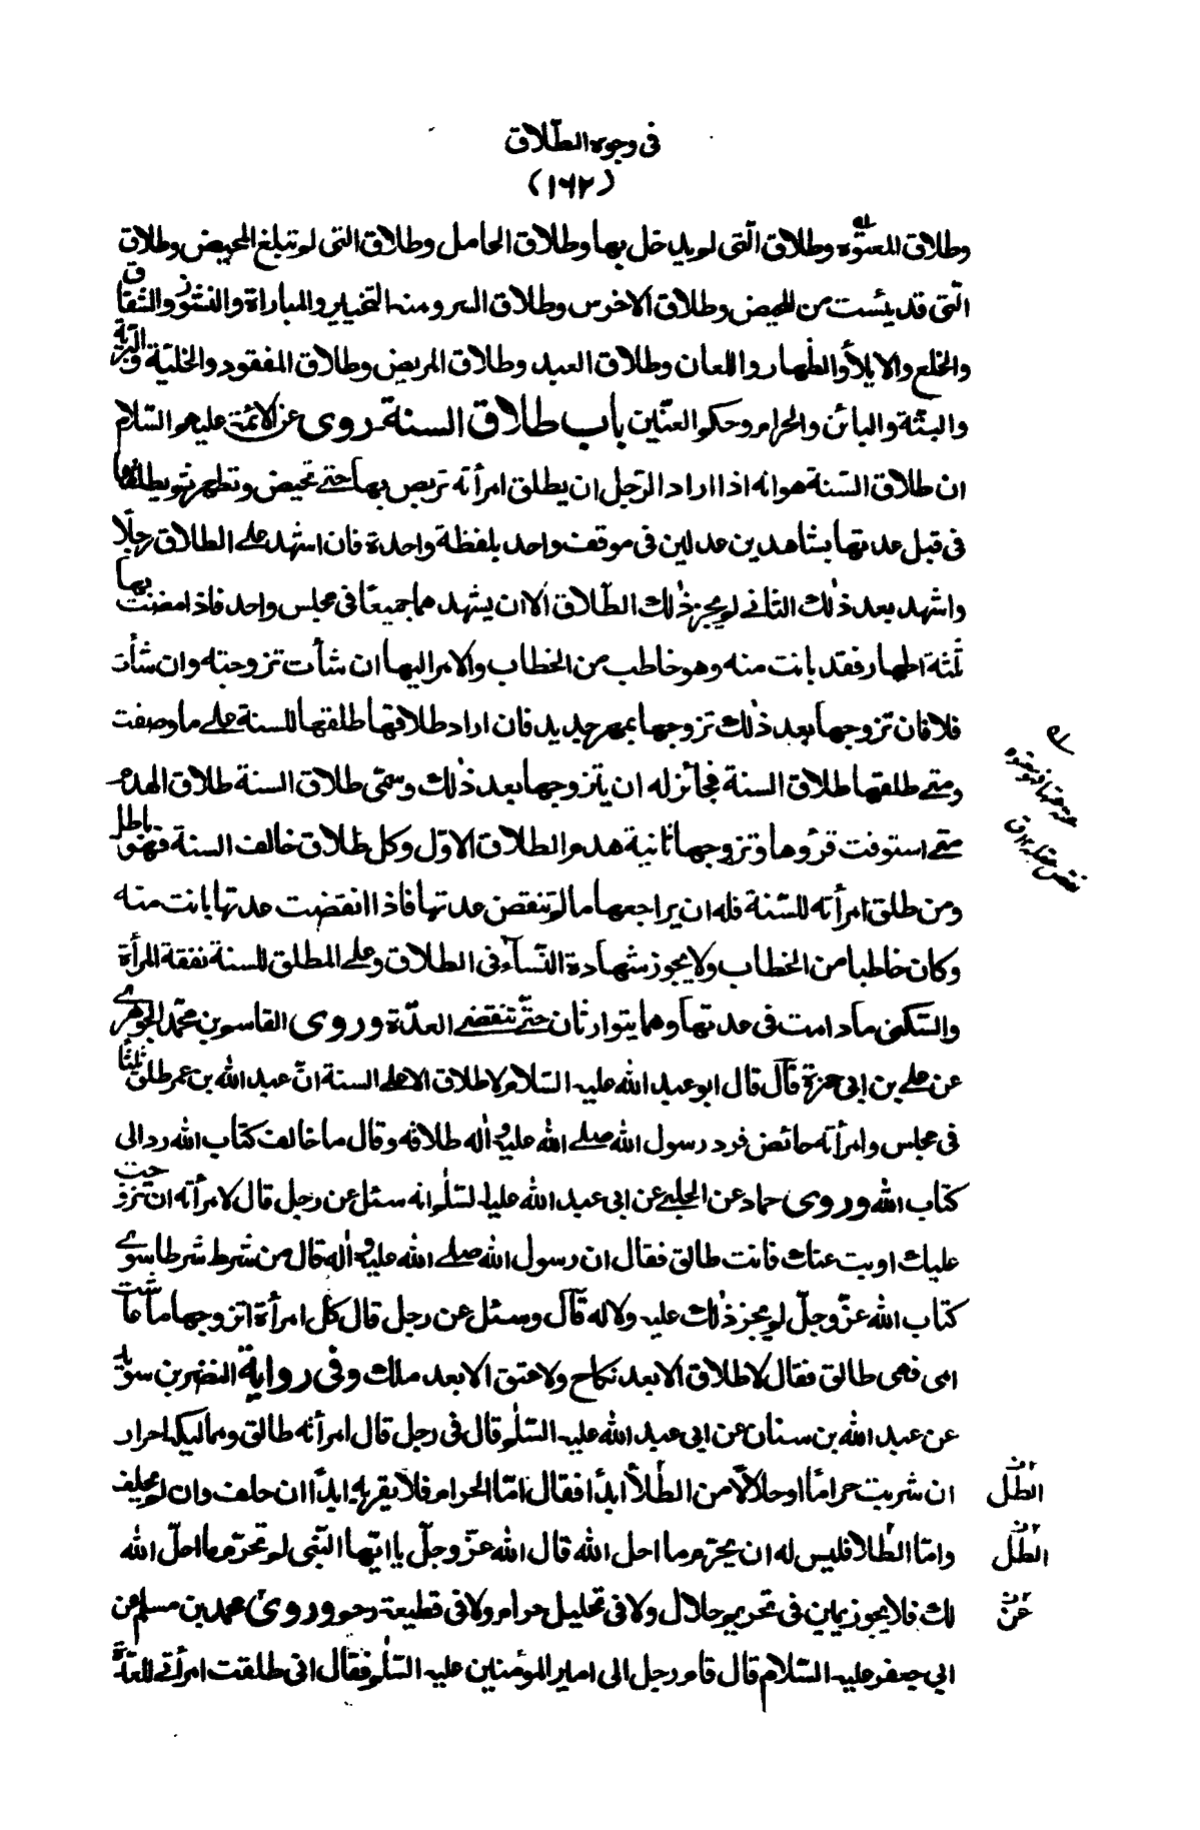 فى وجوه الطّلاق
(١٦٢)
وطلاق المعتوّه وطلاق الّتى لم يدخل بها وطلاق الحامل وطلاق التى لم تبلغ المحيض وطلاق
الّتى قد يئست من المحيض وطلاق الاخرس وطلاق السر ومنه التخيير والمباراة والنشوز والشقاق
والخلع والايلأ والظهار واللعان وطلاق العبد وطلاق المريض وطلاق المفقود والخليّة والبريّة
والبتّة والبائن والحرام وحكم العنّين باب طلاق السنة روى عن الائمة عليهم السّلام
ان طلاق السّنة هو انه اذا اراد الرّجل ان يطلق امرأته تربص بها حتى تحيض وتطهر ثم يطلقها
فى قبل عدتها بشاهدين عدلين فى موقف واحد بلفظة واحدة فان اشهد على الطلاق رجلًا
واشهد بعد ذٰلك الثانى لم يجز ذٰلك الطّلاق الا ان يشهدهما جميعًا فى مجلس واحد فاذا مضت بها
ثلثة اطهار فقد بانت منه وهو خاطب من الخطاب والامر اليها ان شأت تزوجته وان شأت
فلا فان تزوجها بعد ذٰلك تزوجها بمهر جديد فان اراد طلاقها طلقها للسنة على ما وصفت
ومتى طلقها طلاق السنة فجائز له ان يتزوجها بعد ذٰلك وسمّى طلاق السنة طلاق الهدم
متى استوفت قروءها وتزوجها ثانية هدم الطلاق الاوّل وكل طلاق خالف السنة فهو باطل
ومن طلق امرأته للسّنة فله ان يراجعها ما لم تنقض عدتها فاذا انقضت عدتها بانت منه
وكان خاطبا من الخطاب ولا يجوز شهادة النّسآء فى الطلاق وعلى المطلق للسنة نفقة المرأة
والسّكنى ما دامت فى عدتها وهما يتوارثان حتّى تنقضى العدّة وروى القاسم بن محمّد الجوهرى
عن على بن ابى حمزة قال قال ابو عبد الله عليه السّلام لا طلاق الا على السنة انّ عبد الله بن عمر طلق ثلثًا
فى مجلس وامرأته حائض فرد رسول الله صلى الله عليه واله طلاقه وقال ما خالف كتاب الله رد الى
كتاب الله وروى حماد عن الحلبى عن ابى عبد الله عليه السّلام انه سئل عن رجل قال لامرأته ان تزوجت
عليك او بت عنك فانت طالق فقال ان رسول الله صلى الله عليه واله قال من شرط شرطا سوى
كتاب الله عزّ وجلّ لم يجز ذٰلك عليه ولا له قال وسئل عن رجل قال كل امرأة اتزوجها ما عاشت
امى فهى طالق فقال لا طلاق الا بعد نكاح ولا عتق الا بعد ملك وفى رواية النضر بن سويد
عن عبد الله بن سنان عن ابى عبد الله عليه السّلم قال فى رجل قال امرأته طالق ومماليكه احرار
ان شربت حرامًا او حلالًا من الطّلأ ابدًا فقال امّا الحرام فلا يقربه ابدًا ان حلف وان لم يحلف
وامّا الطّلا فليس له ان يحرّم ما احل الله قال الله عزّ وجلّ يا ايّها النّبى لم تحرّم ما احلّ الله
لك فلا يجوز يمين فى تحريم حلال ولا فى تحليل حرام ولا فى قطيعة رحم وروى محمد بن مسلم عن
ابى جعفر عليه السّلام قال قام رجل الى امير المؤمنين عليه السّلم فقال انى طلقت امرأتى للعدّة
الطّل
الطّل
عن